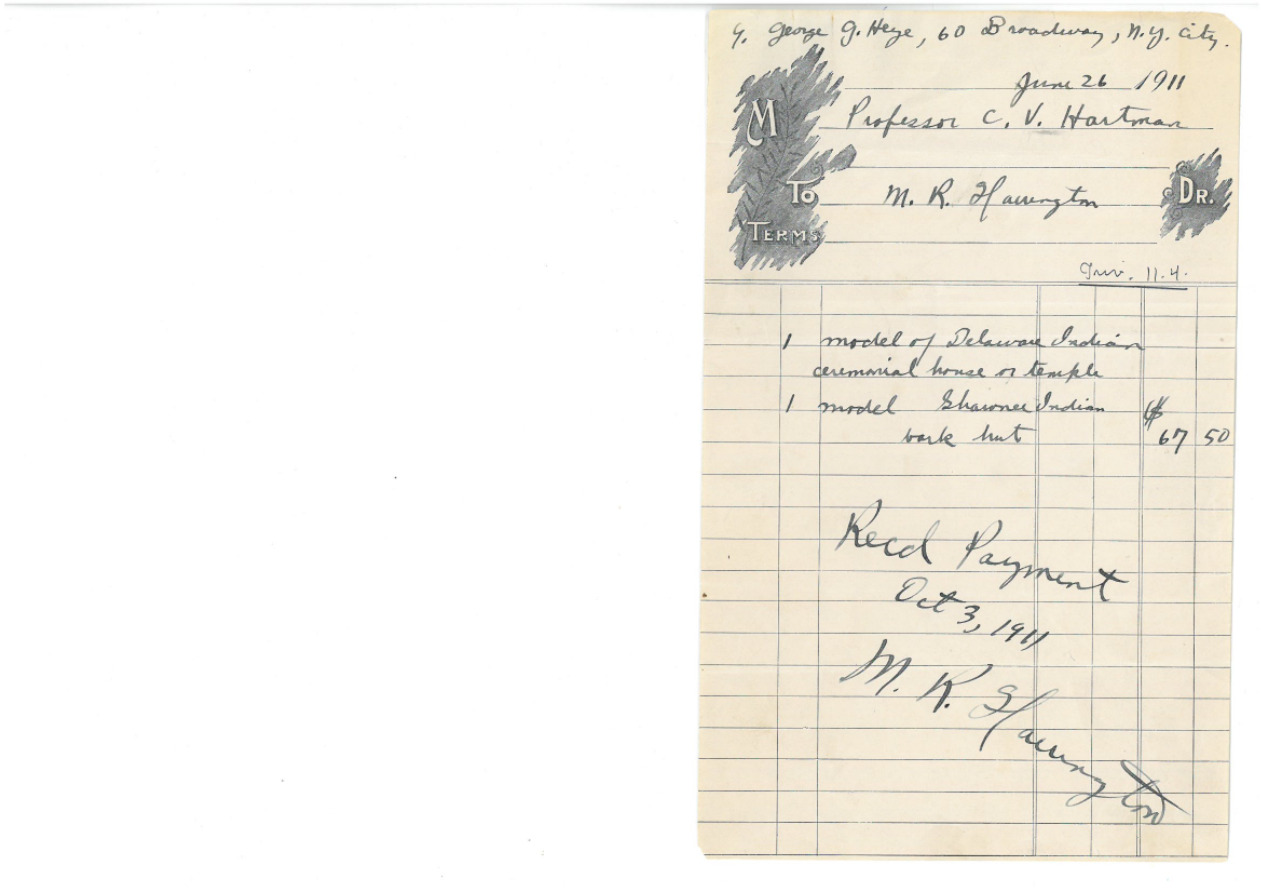 George G. Heye, 60 Broadway, N.Y. City.
June 26 1911
M Professor C. V. Hartman
To M. R. Harrington DR.
TERMS
Inv. 11.4.
1 model of Delaware Indian
ceremonial house or temple
1 model Shawnee Indian $
bark hut 67 50
Recd Payment
Oct 3, 1911
M. R. Harrington